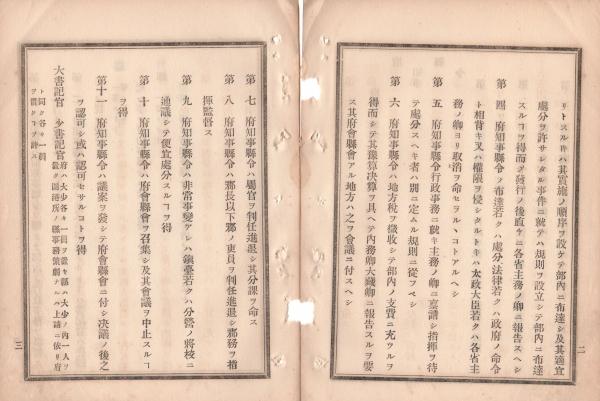 リトスル片ハ其實施ノ順序ヲ設ケテ部內ニ布達シ及其適宜
處分ヲ許サレタル事件ニ就テハ規則ヲ設立シテ部內ニ布達
スルヿヲ得而シテ發行ノ後直チニ各省主務ノ卿ニ報告スヘシ
第四 府知事縣令ノ布達若クハ處分法律若クハ政府ノ命令
ト相背キ又ハ權限ヲ侵シタルトキハ太政大臣若クハ各省主
務ノ卿ヨリ取消ヲ命セラルヽコトアルヘシ
第五 府知事縣令行政事務ニ就キ主務ノ卿ニ稟請シ指揮ヲ待
テ處分スヘキ者ハ別ニ定ムル規則ニ從フヘシ
第六 府知事縣令ハ地方稅ヲ徵收シテ部內ノ支費ニ充ツルヲ
得而シテ其豫算決算ヲ具ヘテ內務卿大藏卿ニ報告スルヲ要
ス其府會縣會アル地方ハ之ヲ會議ニ付スヘシ
二
第七 府知事縣令ハ屬官ヲ判任進退シ其分課ヲ命ス
第八 府知事縣令ハ郡長以下郡ノ吏員ヲ判任進退シ郡務ヲ指
揮監督ス
第九 府知事縣令ハ非常事變アレハ鎭臺若クハ分營ノ將校ニ
通議シテ便宜處分スルヿヲ得
第十 府知事縣令ハ府會縣會ヲ召集シ及其會議ヲ中止スルヿ
ヲ得
第十一 府知事縣令ハ議案ヲ發シテ府會縣會ニ付シ決議ノ後之
ヲ認可シ或ハ認可セサルコトヲ得
大書記官 少書記官 府ハ大少各一員ヲ置キ縣ハ大少ノ內一人ヲ
置ク開港所ノ縣事務繁劇ナルハ上請ニ依リ府
ト同ク各一員
ヲ置クコヲ許ス
三